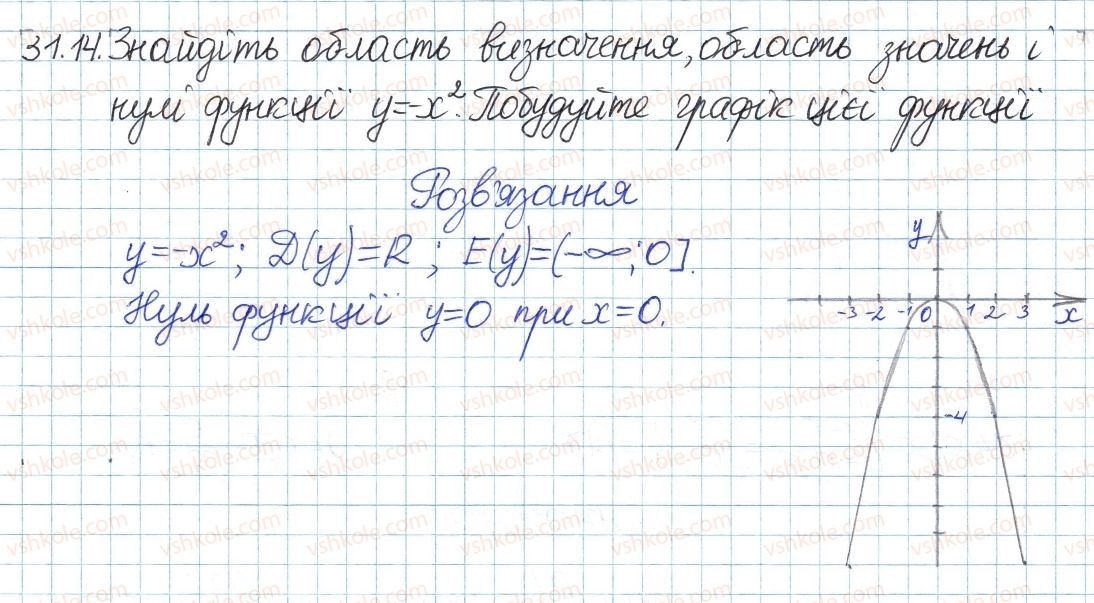 31.14. Знайдіть область визначення, область значень і
нулі функції y=-x². Побудуйте графік цієї функції
Розв'язання
y=-x²; D(y)=R; E(y)=(-∞;0].
Нуль функції y=0 при x=0.
y
-3 -2 -1 0 1 2 3 x
-4
vshkole.com